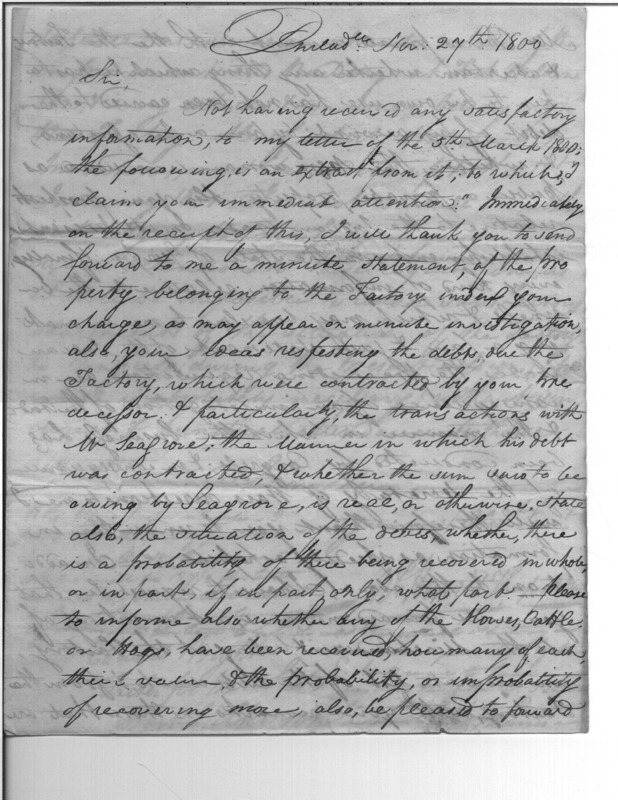 Philad.a Nov: 27th 1800
Sir,
Not having received any satisfactory
information, to my letter of the 5th March 1800;
the following is an extract from it; to which "I
claim your immediate attention." Immediately
on the receipt of this, I will thank you to send
forward to me a minute statement, of the pro
perty belonging to the Factory under your
charge, as may appear on minute investigation,
also, your ideas respecting the debts, due the
Factory, which were contracted by your pre
decessor. & particularly, the transactions with
Mr Seagrove; the manner in which his debt
was contracted, & whether the sum said to be
owing by Seagrove, is real, or otherwise, state
also, the situation of the debts, whether, there
is a probability of there being recovered in whole,
or in part, if in part, only, what part. — Please
to informe also whether any of the Horses, Cattle.
or Hogs, have been received, how many of each,
their value, & the probability, or improbability
of recovering more, also, be pleased to forward